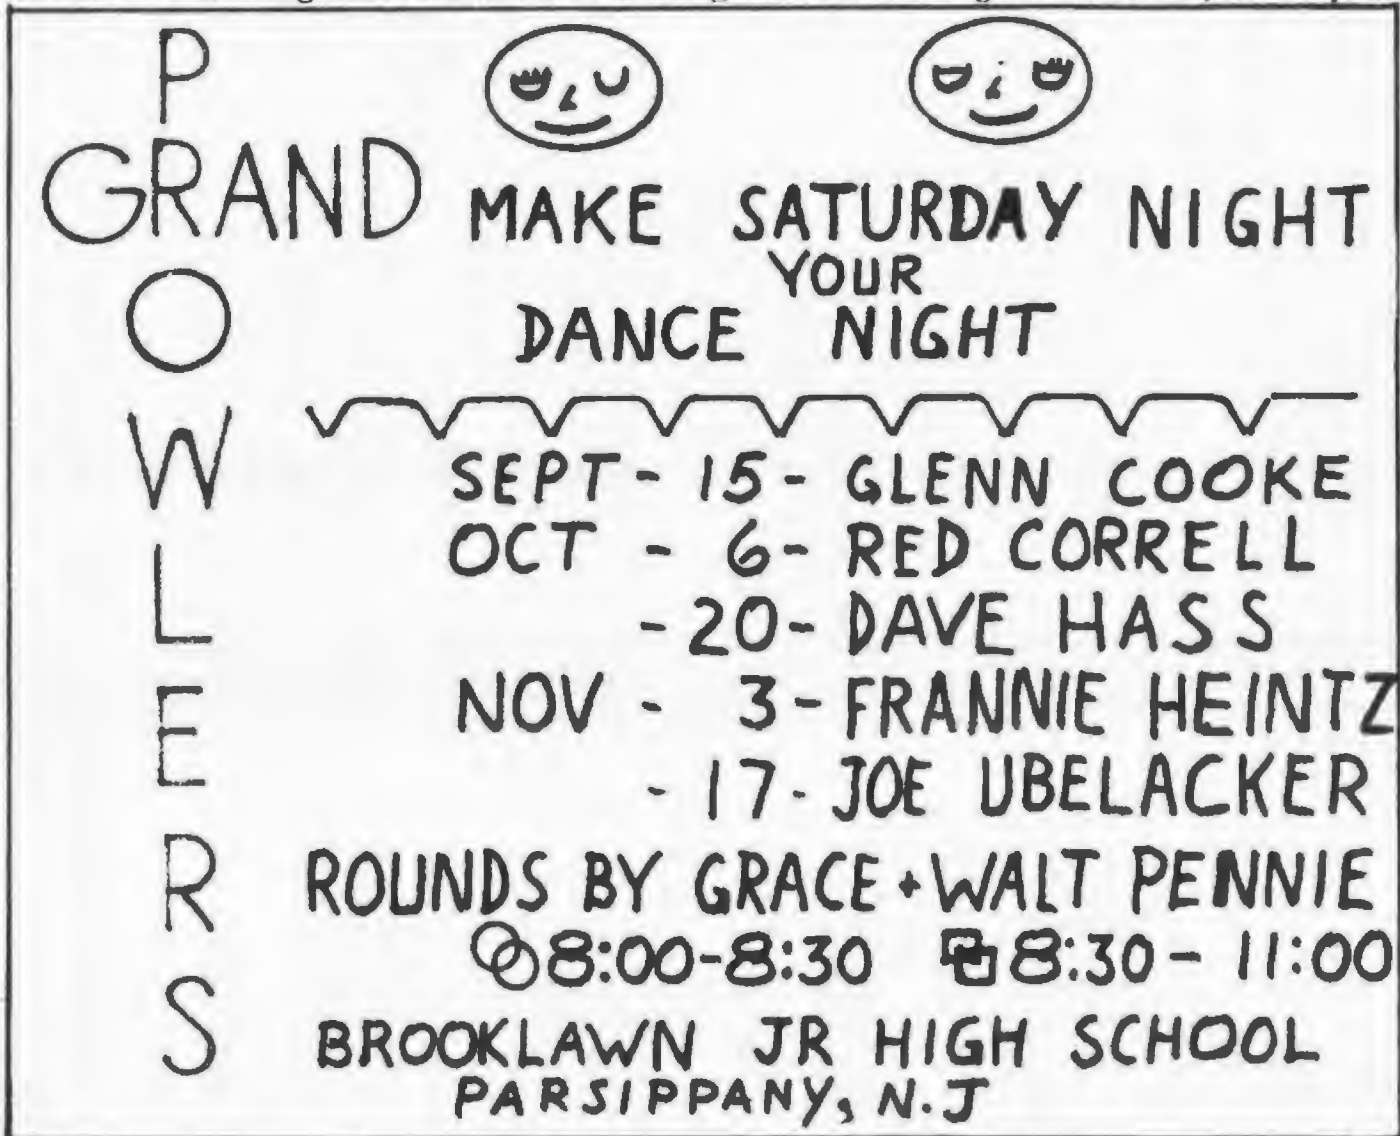 GRAND
PROWLERS
MAKE SATURDAY NIGHT
YOUR
DANCE NIGHT
SEPT - 15 - GLENN COOKE
OCT - 6 - RED CORRELL
- 20 - DAVE HASS
NOV - 3 - FRANNIE HEINTZ
- 17 - JOE UBELACKER
ROUNDS BY GRACE + WALT PENNIE
8:00-8:30 8:30 - 11:00
BROOKLAWN JR HIGH SCHOOL
PARSIPPANY, N.J